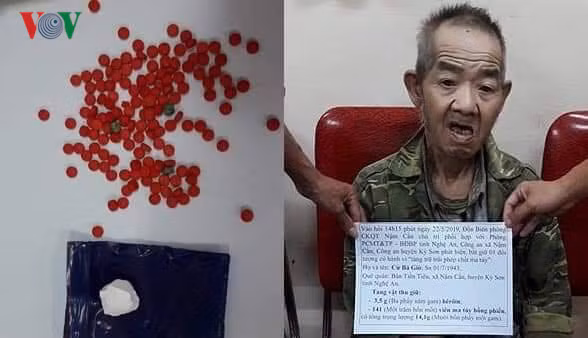 VOV
Vào hồi 14h15 phút ngày 22/5/2019, Đồn Biên phòng
CKQT Nậm Cắn chủ trì phối hợp với Phòng
PCMT&TP - BĐBP tỉnh Nghệ An, Công an xã Nậm
Cắn, Công an huyện Kỳ Sơn phát hiện, bắt giữ 01 đối
tượng có hành vi "tàng trữ trái phép chất ma túy"
Họ và tên: Cự Bá Giờ, Sn 01/7/1943,
Quê quán: Bản Tiền Tiêu, xã Nậm Cắn, huyện Kỳ Sơn
tỉnh Nghệ An.
Tang vật thu giữ:
- 3,5 g (Ba phẩy năm gam) hêrôin.
- 141 (Một trăm bốn mốt) viên ma túy hồng phiến,
có tổng trọng lượng 14,1g (Mười bốn phẩy một gam).